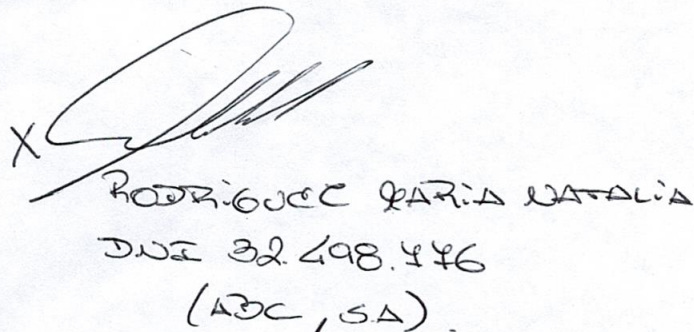 X
RODRIGUEZ MARIA NATALIA
DNI 32.498.776
(ABC, SA).